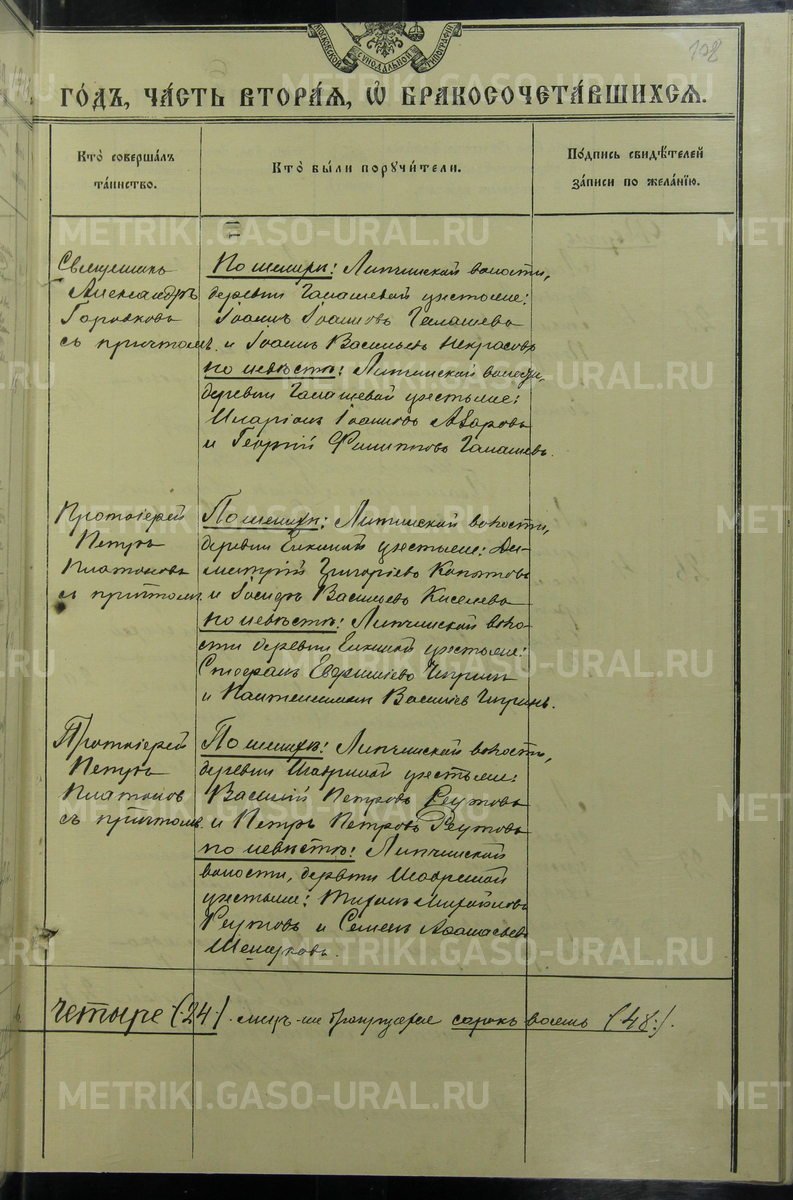 МОСКОВСКОЙ СѴНОДАЛЬНОЙ ТИПОГРАФІИ
108
ГО́ДЪ, ЧА́СТЬ ВТОРА́Ѧ, Ѡ҆ БРАКОСОЧЕТА́ВШИХСѦ.
Кто̀ соверша́лъ
та́инство.
Кто̀ бы́ли поручи́тели.
По́дпись свидѣ́телей
за́писи по жела́нїю.
Священникъ
Александръ
Горбхковъ
съ причтомъ.
По женихѣ: Липчинской волости,
деревни Галашевой крестьяне:
Іоаннъ Іоанновъ Галашевъ
и Іоаннъ Васильевъ Некрасовъ
по невѣстѣ: Липчинской волости,
деревни Галашевой крестьяне:
Иларіонъ Іоанновъ
и Георгій Филипповъ Галашевъ.
Протоіерей
Петръ
Платоновъ
съ причтомъ
По женихѣ: Липчинской волости,
деревни Елкиной крестьяне: Ди-
митрій Григорьевъ Копытовъ
и Іосифъ Васильевъ Киселевъ
по невѣстѣ: Липчинской воло-
сти деревни Елкиной крестьяне:
Стефанъ Чиринъ
и Пантелеимонъ Васильевъ Чиринъ.
Протоіерей
Петръ
Платоновъ
съ причтомъ.
По женихѣ: Липчинской волости,
деревни Шавриной крестьяне:
Василій Петровъ Реутовъ
и Петръ Петровъ Реутовъ
по невѣстѣ: Липчинской
волости, деревни Шавриной
крестьяне: Тихонъ Михайловъ
Реутовъ и Семенъ Афанасьевъ
четыре (24.) лицъ-же сорокъ восемь (48.).
METRIKI.GASO-URAL.RU